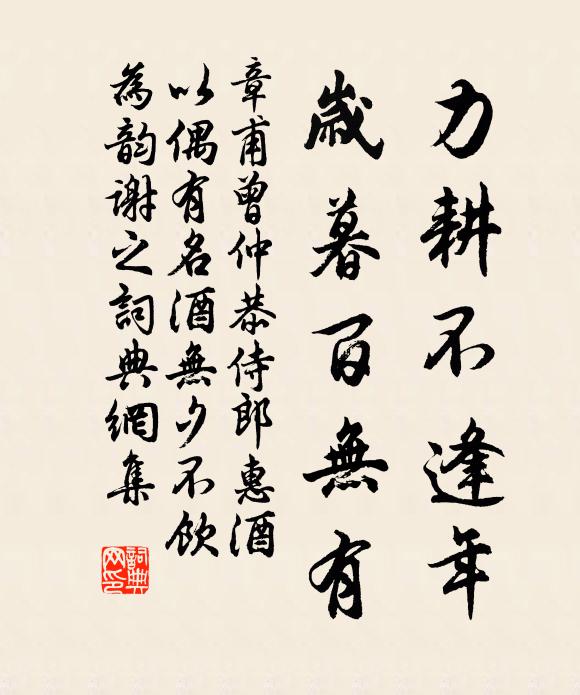 力耕不逢年
歲暮百無有
章甫曾仲恭侍郎惠酒
以偶有名酒無夕不飲
為韵謝之詞典網集
詞典
网印